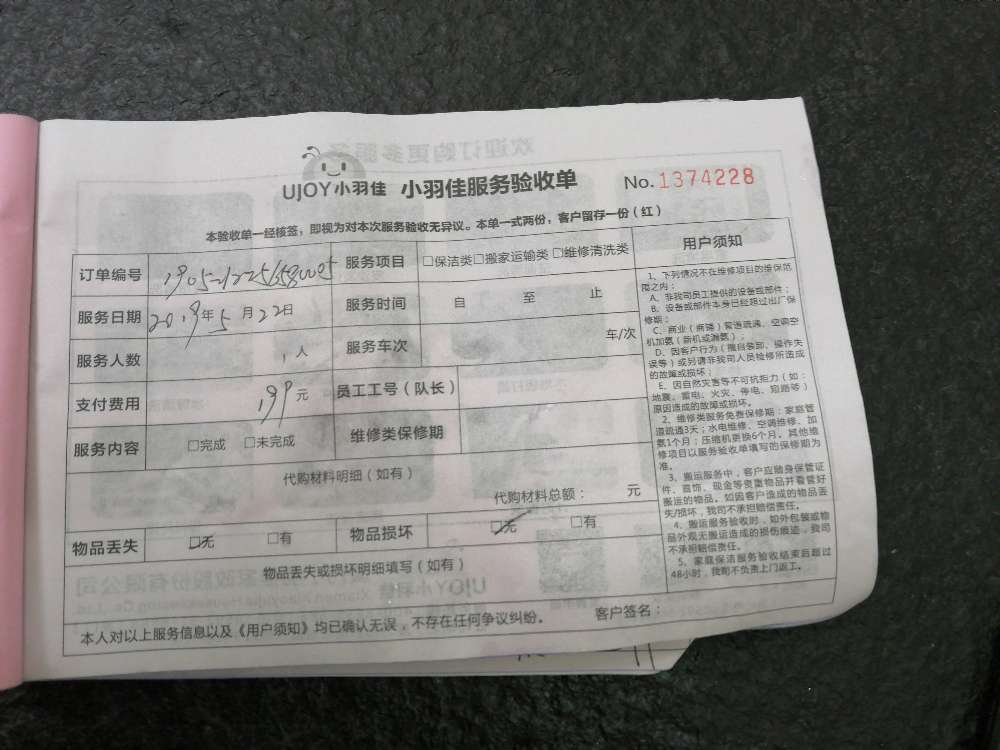 UJOY小羽佳 小羽佳服务验收单 No.1374228
本验收单一经核签，即视为对本次服务验收无异议。本单一式两份，客户留存一份（红）
订单编号 服务项目 □保洁类□搬家运输类□维修清洗类
服务日期 2019年5月22日 服务时间 自 至 止
服务人数 1人 服务车次 车/次
支付费用 199元 员工工号（队长）
服务内容 □完成 □未完成 维修类保修期
代购材料明细（如有）
代购材料总额： 元
物品丢失 □无 □有 物品损坏 □无 □有
物品丢失或损坏明细填写（如有）
本人对以上服务信息以及《用户须知》均已确认无误，不存在任何争议纠纷。 客户签名：
用户须知
1、下列情况不在维修项目的维保范
围之内：
A、非我司员工提供的设备或部件；
B、设备或部件本身已经超过出厂保
修期；
C、商业（商铺）管道疏通、空调空
机加氨（新机或漏氨）；
D、因客户行为（擅自装卸、操作失
误等）或另请非我司人员检修所造成
的故障或损坏；
E、因自然灾害等不可抗拒力（如：
地震、雷电、火灾、停电、短路等）
原因造成的故障或损坏。
2、维修类服务免费保修期：家庭管
道疏通3天；水电维修、空调维修、加
氨1个月；压缩机更换6个月。其他维
修项目以服务验收单填写的保修期为
准。
3、搬运服务中，客户应随身保管证
件、首饰、现金等贵重物品并看管好
搬运的物品。如因客户造成的物品丢
失/损坏，我司不承担赔偿责任。
4、搬运服务验收时，如外包装或物
品外观无搬运造成的损伤痕迹，我司
不承担赔偿责任。
5、家庭保洁服务验收结束后超过
48小时，我司不负责上门返工。